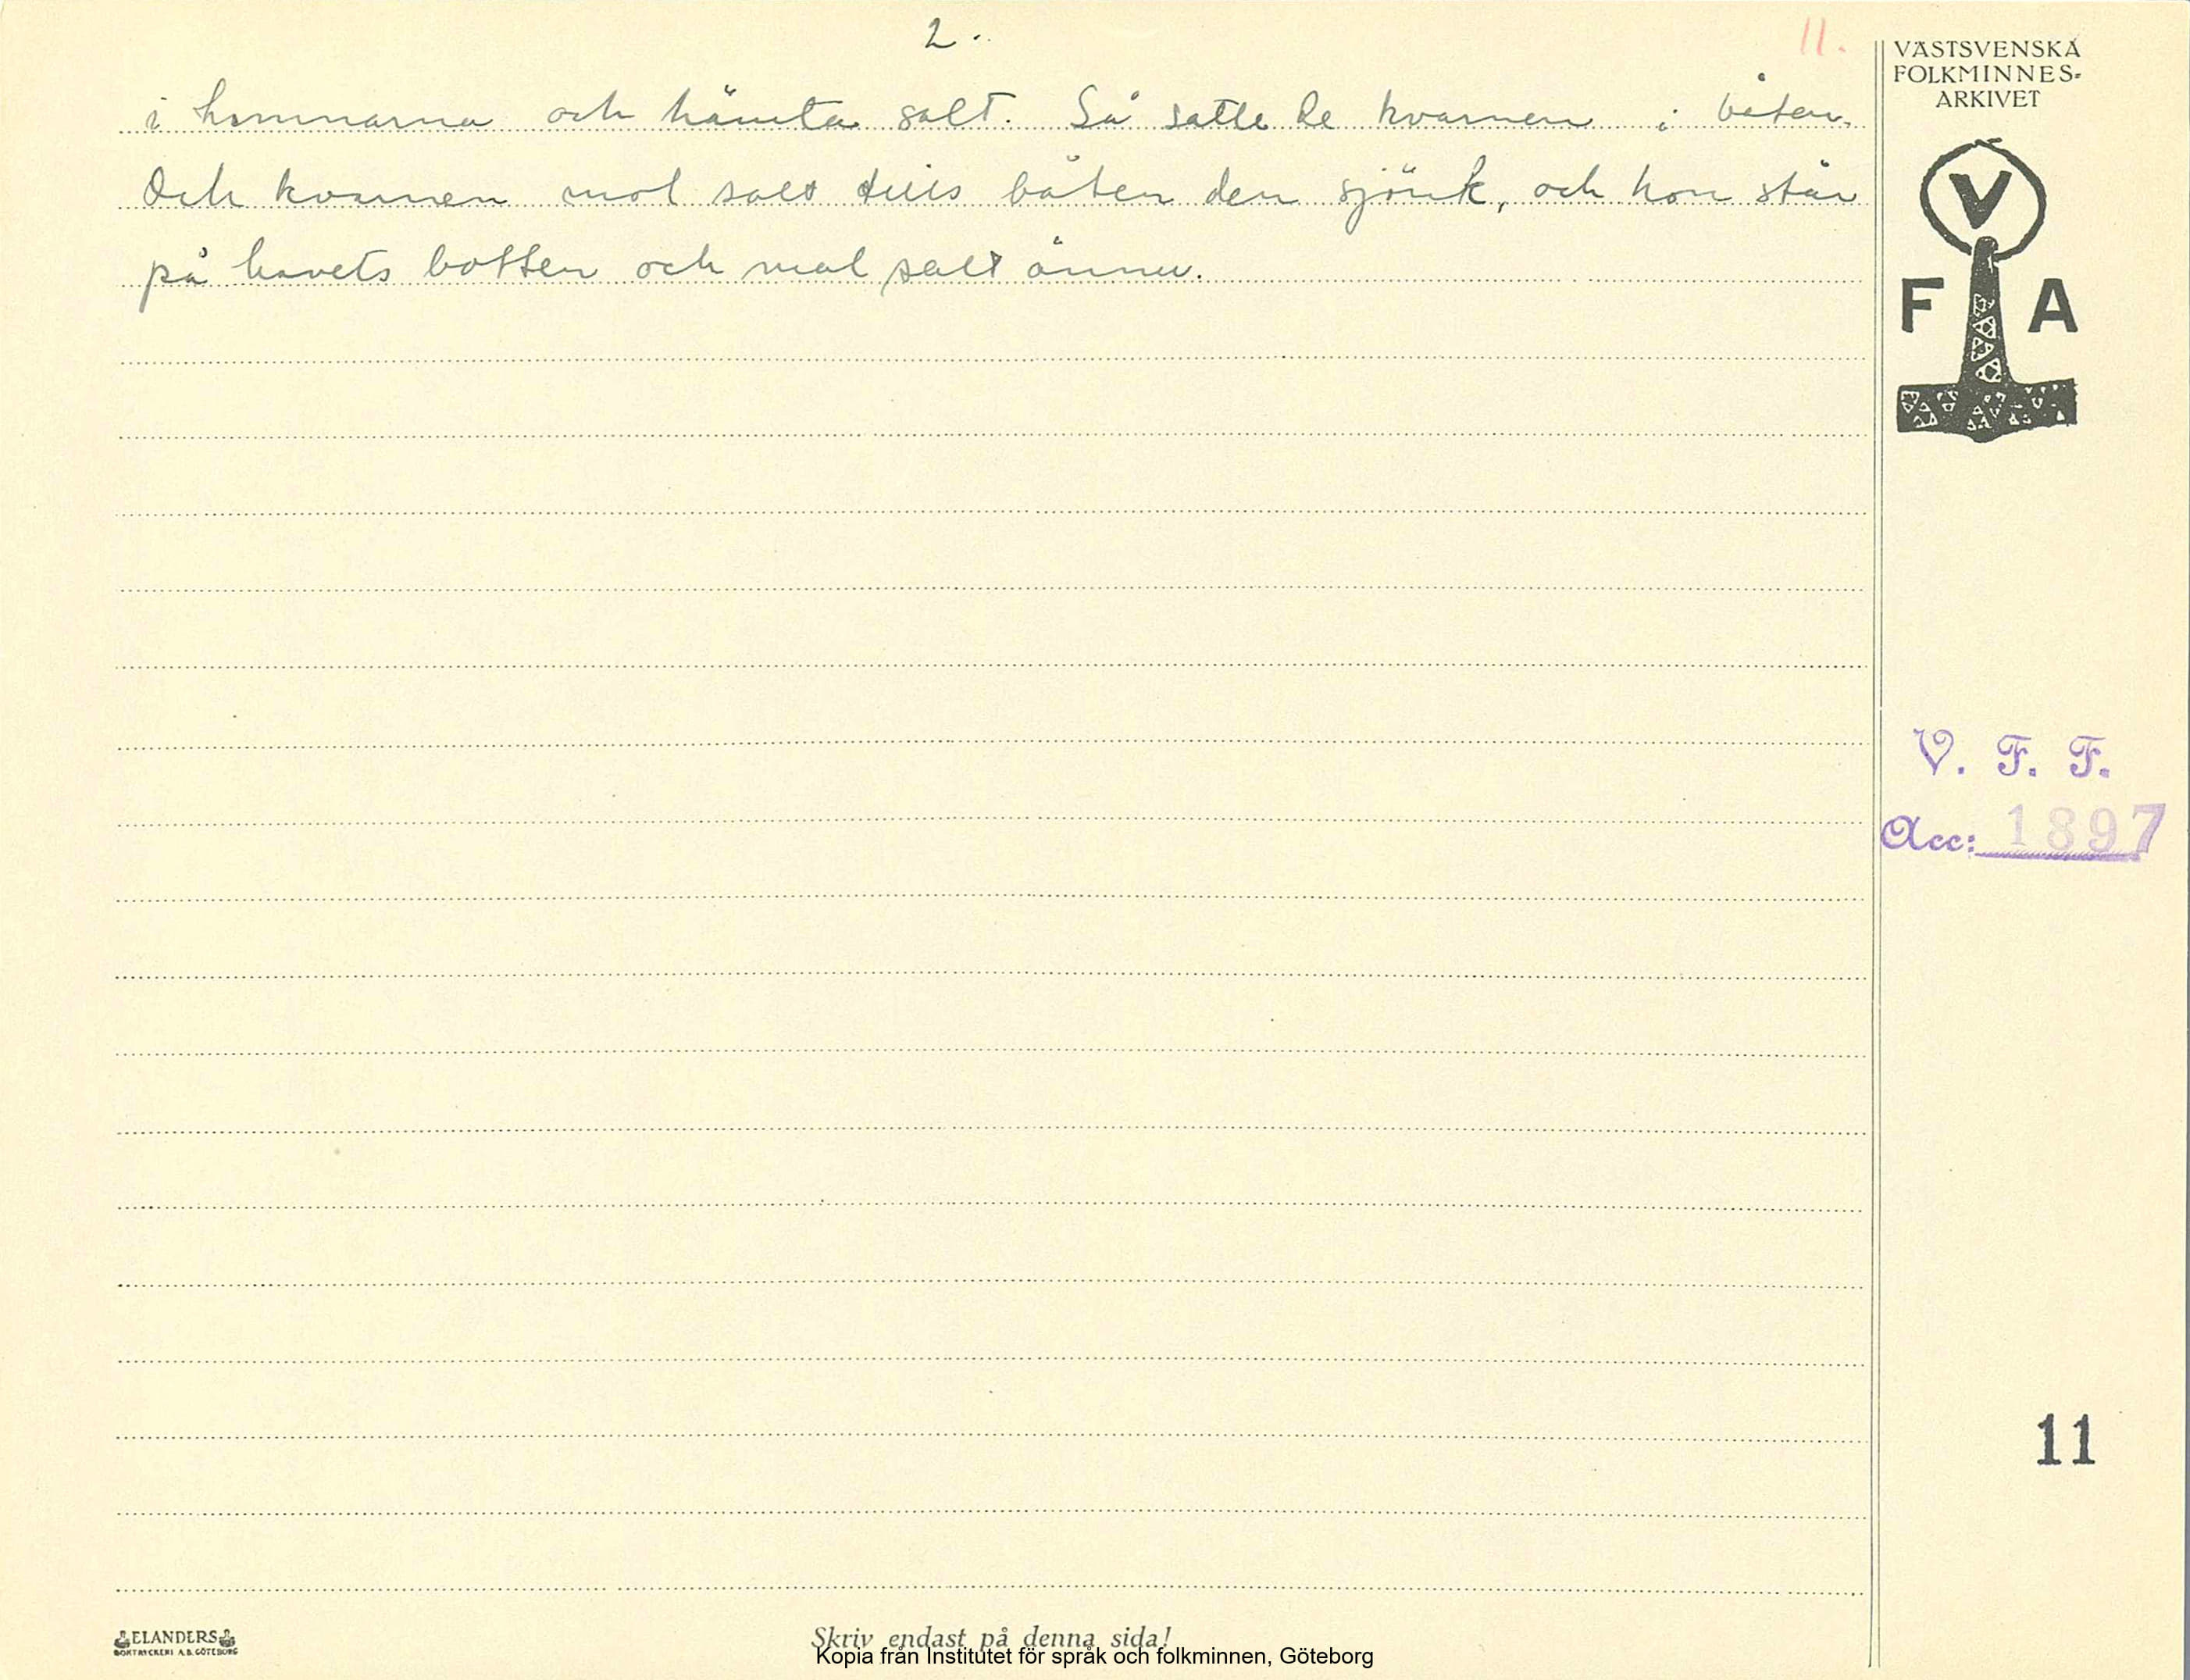 2.
11.
VÄSTSVENSKA
FOLKMINNES-
ARKIVET
i hamnarna och hämta salt. Så satte de kvarnen i båten.
Och kvarnen mol salt tills båten den sjönk, och hon står
på havets botten och mal salt ännu.
V
F A
V. F. F.
Acc: 1897
11
ELANDERS
BOKTRYCKERI A.B. GÖTEBORG
Skriv endast på denna sida!
Kopia från Institutet för språk och folkminnen, Göteborg